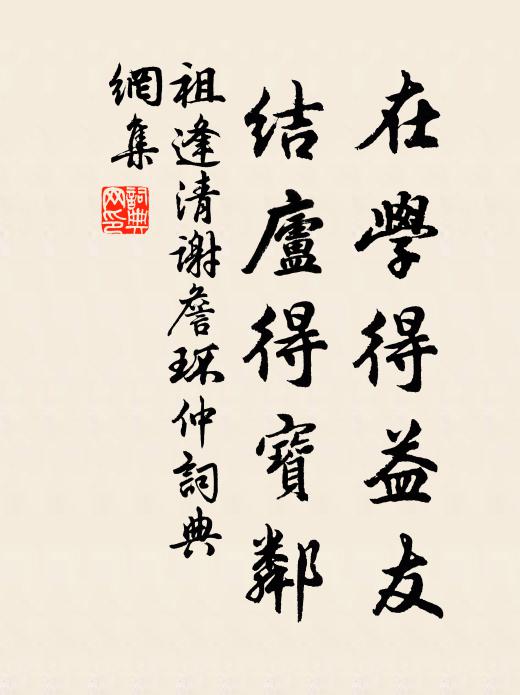 在學得益友
結廬得寶鄰
祖逢清謝詹環仲詞典
網集
詞典網印